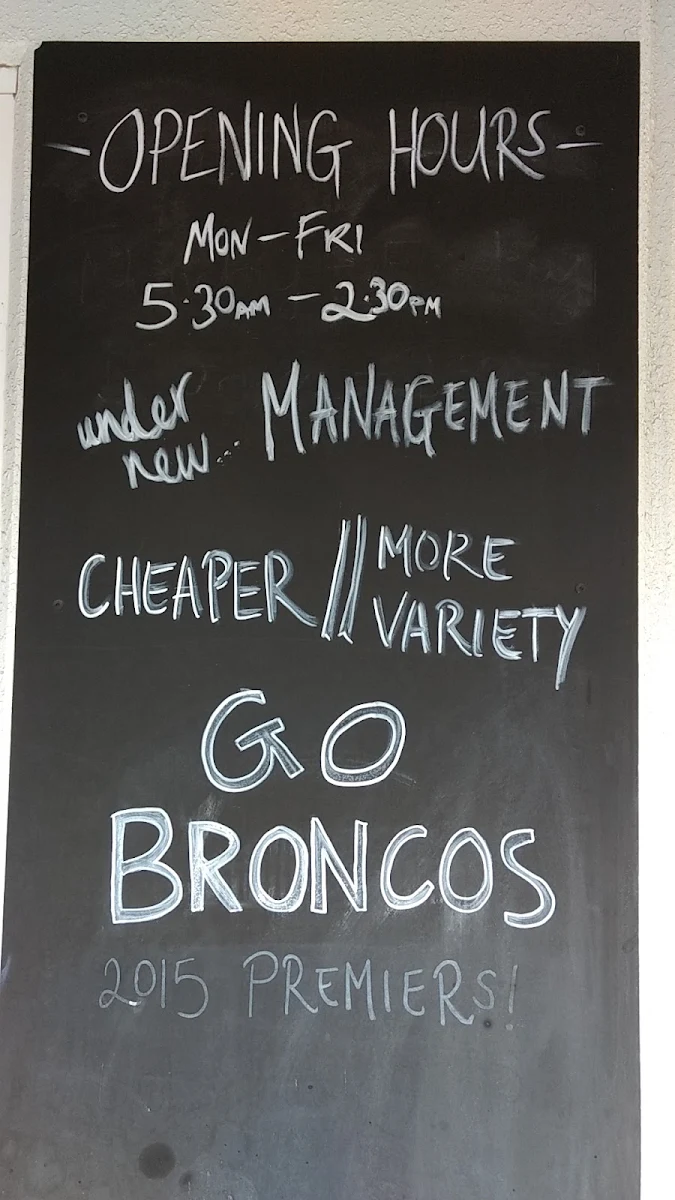 -OPENING HOURS-
MON-FRI
5.30AM - 2.30PM
under
new... MANAGEMENT
CHEAPER // MORE
VARIETY
GO
BRONCOS
2015 PREMIERS!